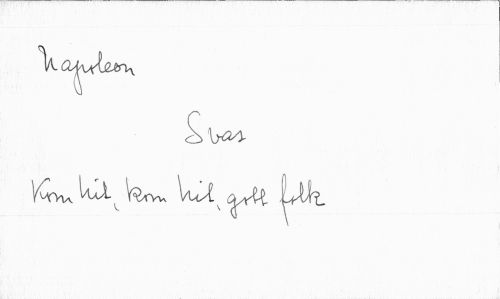 Napoleon
Svar
Kom hit, kom hit, gott folk